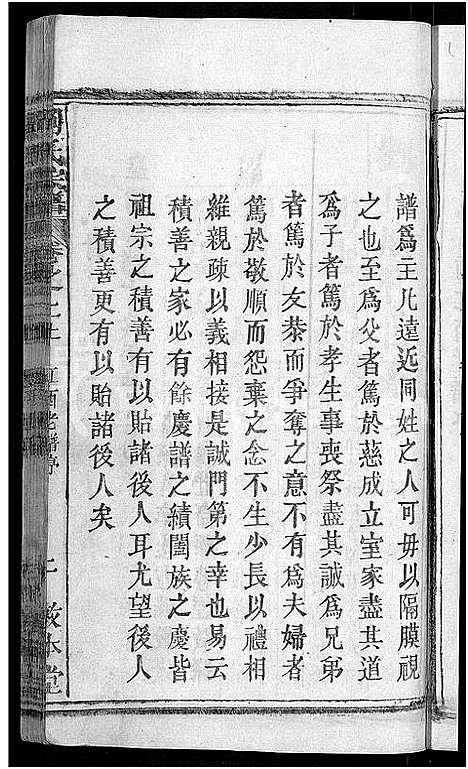 譜爲主凡遠近同姓之人可毋以隔膜視
之也至爲父者篤於慈成立室家盡其道
爲子者篤於孝生事喪祭盡其誠爲兄弟
者篤於友恭而爭奪之意不有爲夫婦者
篤於敬順而怨棄之念不生少長以禮相
維親疎以義相接是誠門第之幸也易云
積善之家必有餘慶譜之續闔族之慶皆
祖宗之積善有以貽諸後人耳尤望後人
之積善更有以貽諸後人矣
氏宗譜 卷之一上 江西老譜序 敦本堂